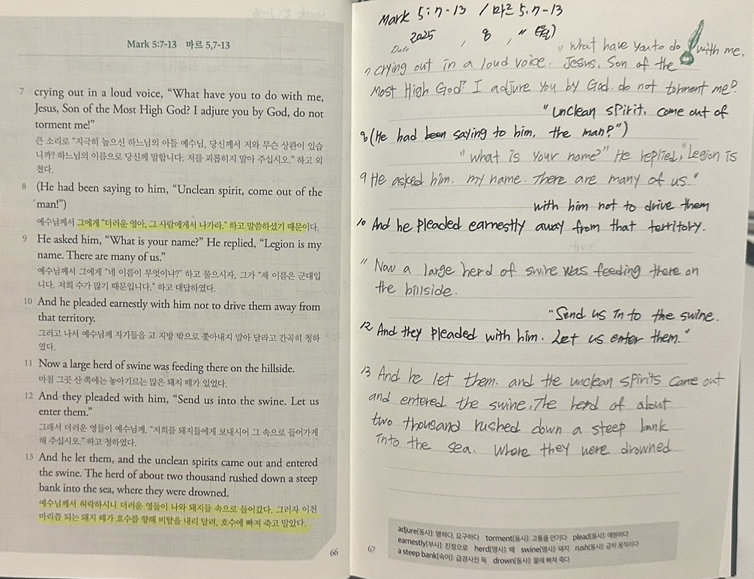 Mark 5:7-13 마르 5,7-13
7 crying out in a loud voice, “What have you to do with me,
Jesus, Son of the Most High God? I adjure you by God, do not
torment me!”
큰 소리로 “지극히 높으신 하느님의 아들 예수님, 당신께서 저와 무슨 상관이 있습
니까? 하느님의 이름으로 당신께 말합니다. 저를 괴롭히지 말아 주십시오.” 하고 외
쳤다.
8 (He had been saying to him, “Unclean spirit, come out of the
man!”)
예수님께서 그에게 “더러운 영아, 그 사람에게서 나가라.” 하고 말씀하셨기 때문이다.
9 He asked him, “What is your name?” He replied, “Legion is my
name. There are many of us.”
예수님께서 그에게 “네 이름이 무엇이냐?” 하고 물으시자, 그가 “제 이름은 군대입
니다. 저희 수가 많기 때문입니다.” 하고 대답하였다.
10 And he pleaded earnestly with him not to drive them away from
that territory.
그러고 나서 예수님께 자기들을 그 지방 밖으로 쫓아내지 말아 달라고 간곡히 청하
였다.
11 Now a large herd of swine was feeding there on the hillside.
마침 그곳 산 쪽에는 놓아기르는 많은 돼지 떼가 있었다.
12 And they pleaded with him, “Send us into the swine. Let us
enter them.”
그래서 더러운 영들이 예수님께, “저희를 돼지들에게 보내시어 그 속으로 들어가게
해 주십시오.” 하고 청하였다.
13 And he let them, and the unclean spirits came out and entered
the swine. The herd of about two thousand rushed down a steep
bank into the sea, where they were drowned.
예수님께서 허락하시니 더러운 영들이 나와 돼지들 속으로 들어갔다. 그러자 이천
마리쯤 되는 돼지 떼가 호수를 향해 비탈을 내리 달려, 호수에 빠져 죽고 말았다.
66
Mark 5:7-13 / 마르 5.7-13
Date 2025, 8, 11 (월)
"what have you to do with me.
7 crying out in a loud voice. Jesus, Son of the
Most High God? I adjure you by God. do not torment me?
"unclean spirit. come out of
8 (He had been saying to him, the man?")
"What is your name?" He replied, "Legion is
9 He asked him. my name. There are many of us."
with him not to drive them
10 And he pleaded earnestly away from that territory.
11 Now a large herd of swine was feeding there on
the hillside.
"Send us in to the swine.
12 And they pleaded with him. Let us enter them."
13 And he let them. and the unclean spirits came out
and entered the swine, The herd of about
two thousand rushed down a steep bank
into the sea. where they were drowned.
adjure(동사): 명하다, 요구하다 torment(동사): 고통을 안기다 plead(동사): 애원하다
earnestly(부사): 진정으로 herd(명사): 떼 swine(명사): 돼지 rush(동사): 급히 움직이다
a steep bank(숙어): 급경사진 둑 drown(동사): 물에 빠져 죽다
67